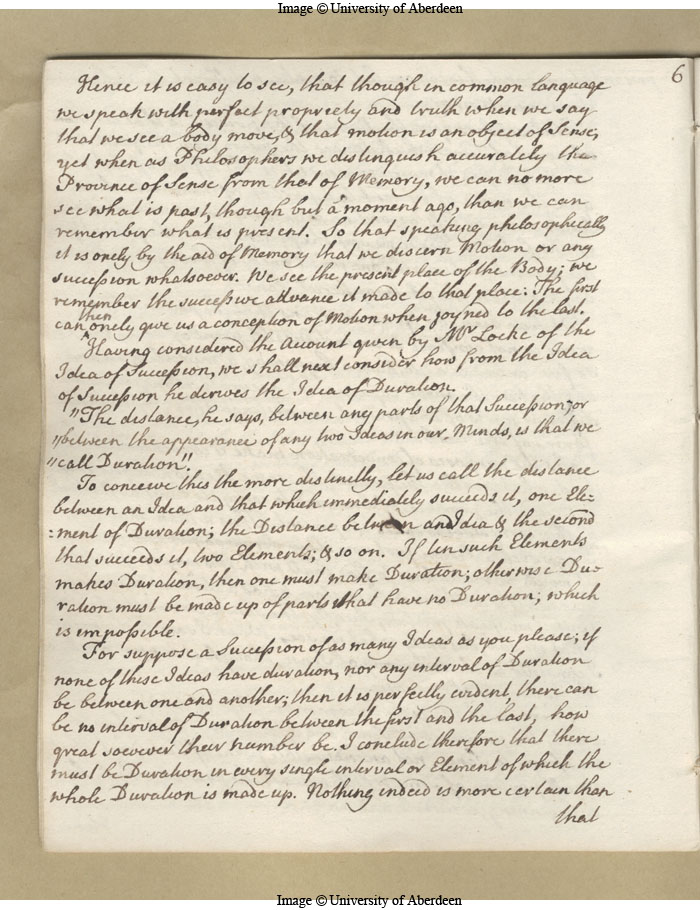 Image © University of Aberdeen
6
Hence it is easy to see, that though in common language
we speak with perfect propriety and truth when we say
that we see a body move, & that motion is an object of Sense,
yet when as Philosophers we distinguish accurately the
Province of Sense from that of Memory, we can no more
see what is past, though but a moment ago, than we can
remember what is present. So that speaking philosophically
it is onely by the aid of Memory that we discern Motion or any
succession whatsoever. We see the present place of the Body; we
remember the successive advance it made to that place: The first
then
can onely give us a conception of Motion when joyned to the last.
Having considered the Account given by Mr Locke of the
Idea of Succession, we shall next consider how from the Idea
of Succession he derives the Idea of Duration.
"The distance, he says, between any parts of that Succession, or
"between the appearance of any two Ideas in our Minds, is that we
"call Duration".
To conceive this the more distinctly, let us call the distance
between an Idea and that which immediately succeeds it, one Ele=
=ment of Duration; the Distance between an Idea & the second
that succeeds it, two Elements; & so on. If ten such Elements
makes Duration, then one must make Duration; otherwise Du-
ration must be made up of parts that have no Duration; which
is impossible.
For suppose a Succession of as many Ideas as you please; if
none of these Ideas have duration, nor any interval of Duration
be between one and another; then it is perfectly evident, there can
be no interval of Duration between the first and the last, how
great soever their number be. I conclude therefore that there
must be Duration in every single interval or Element of which the
whole Duration is made up. Nothing indeed is more certain than
that
Image © University of Aberdeen